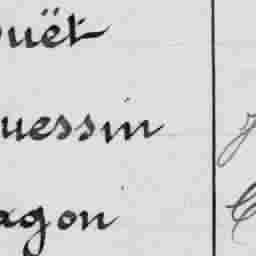 ouët
uessin
agon